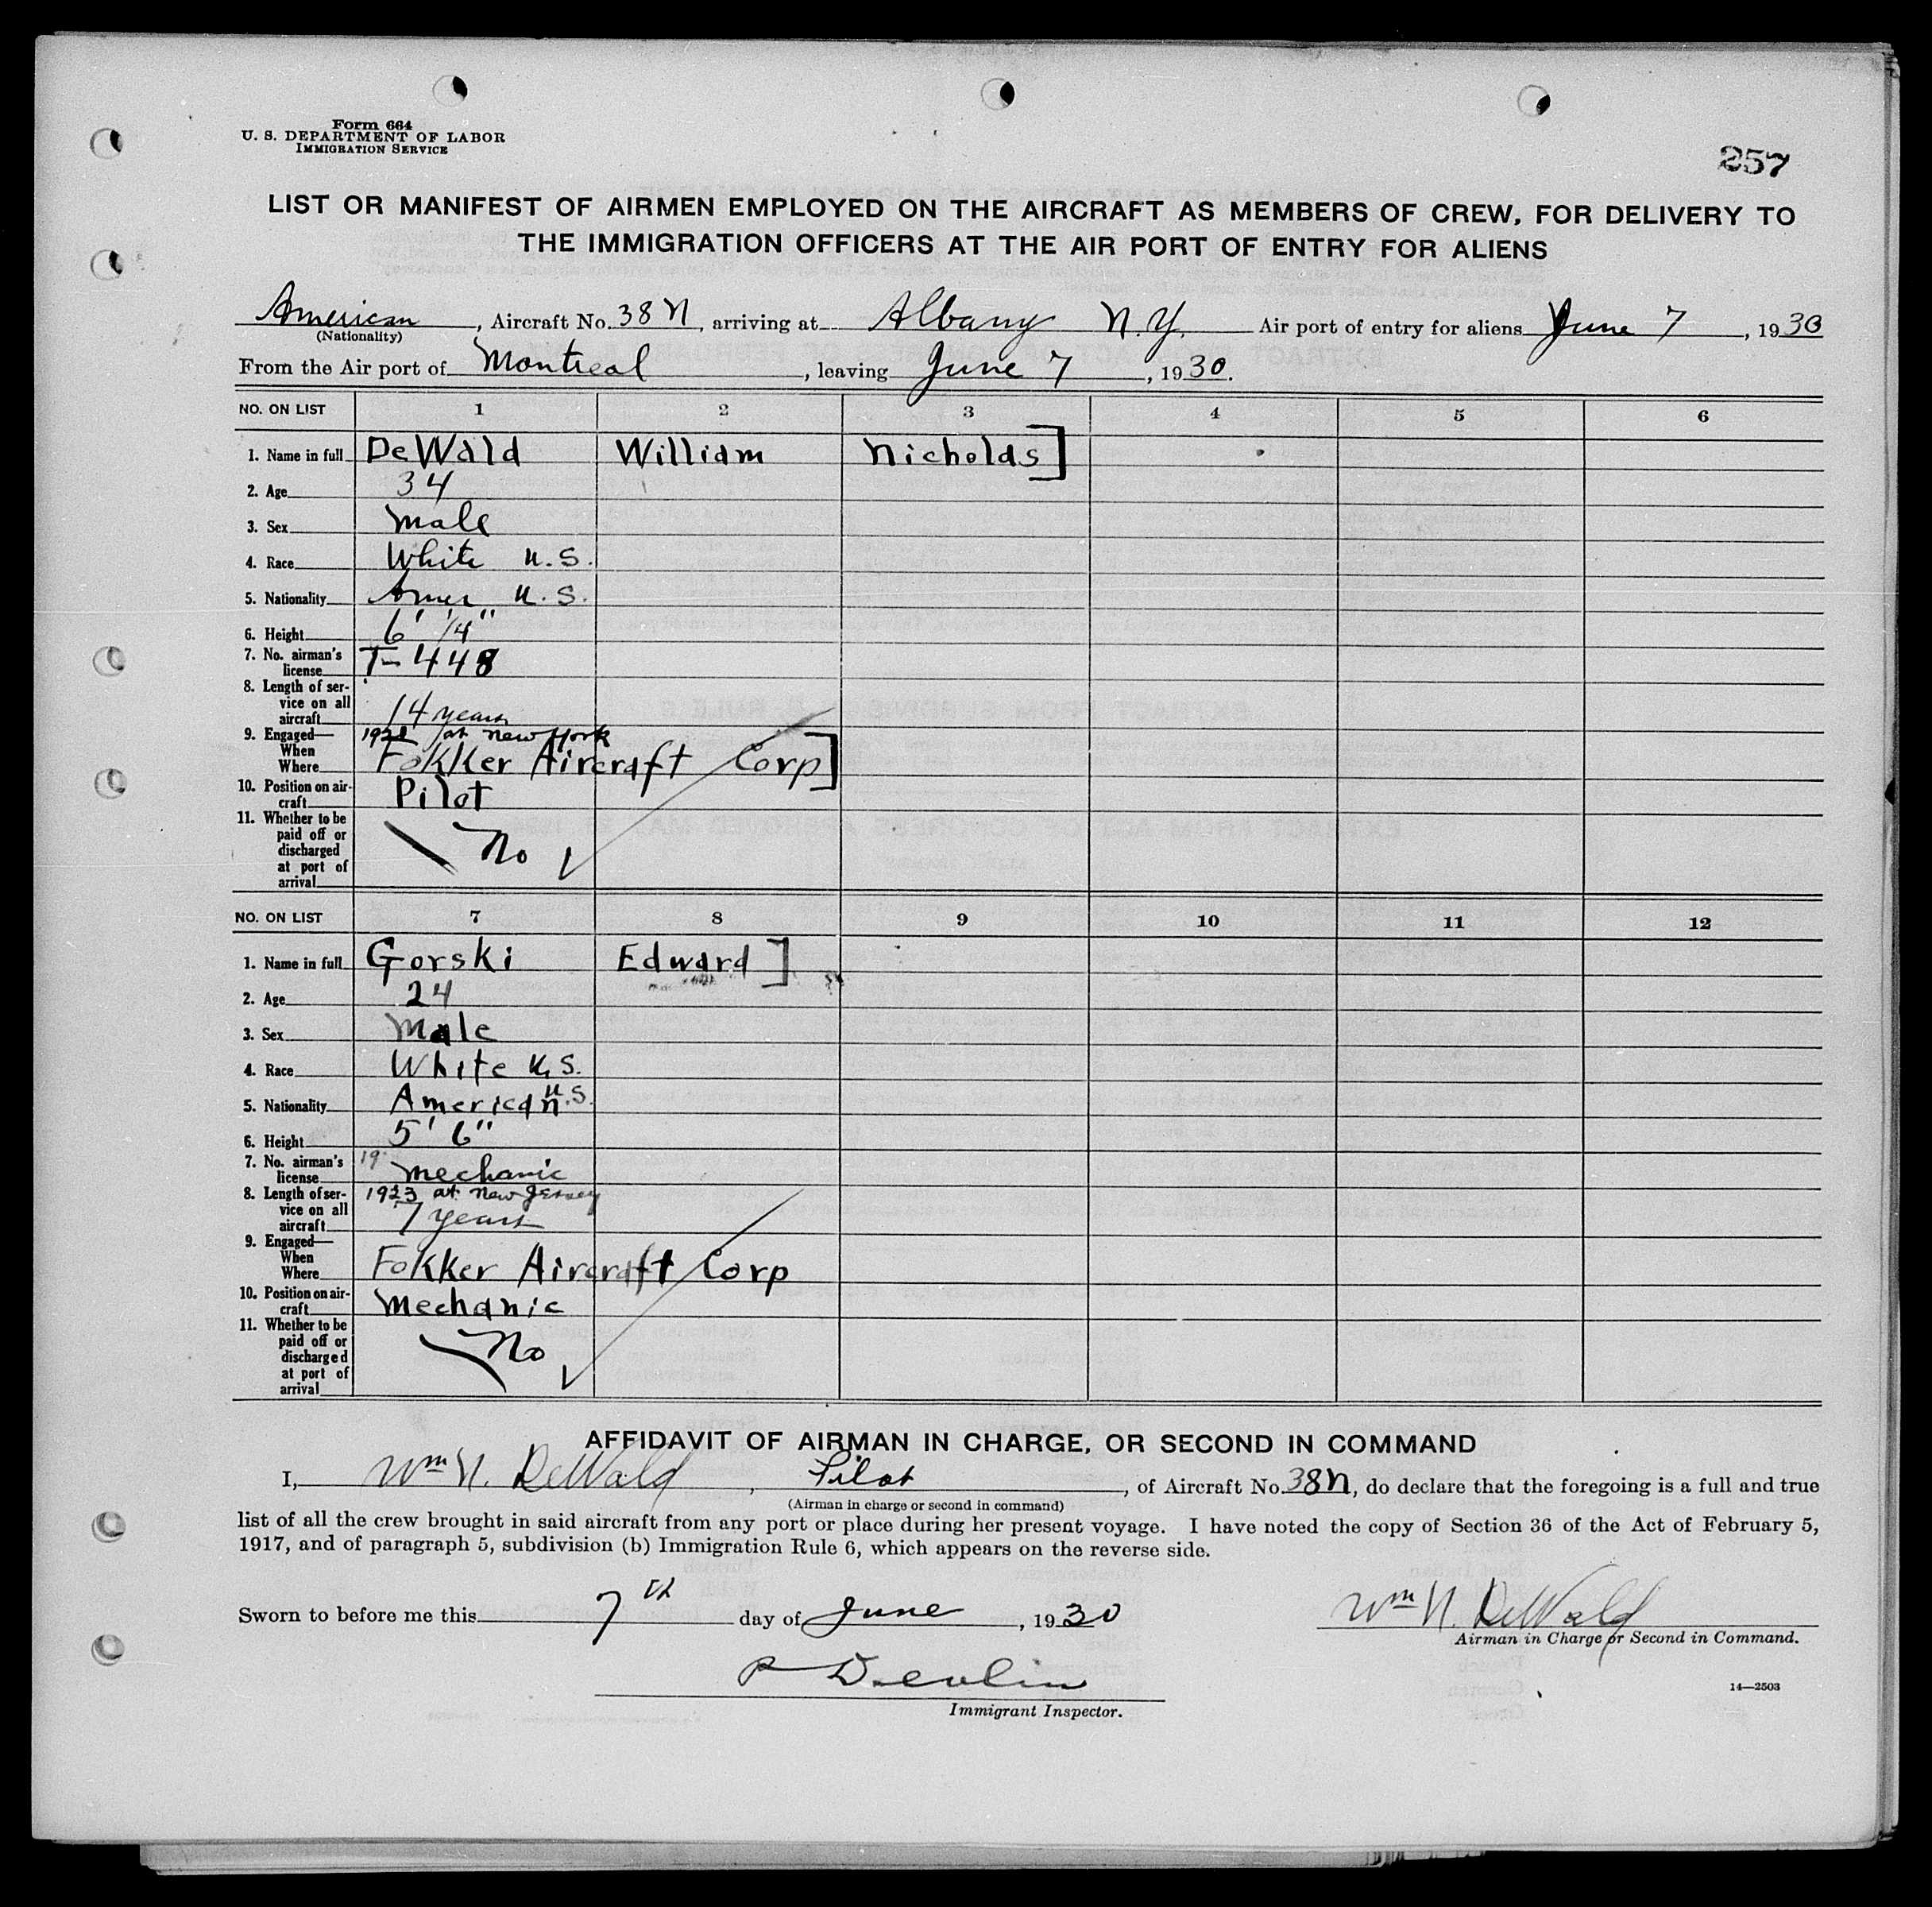 Form 664
U. S. DEPARTMENT OF LABOR
IMMIGRATION SERVICE
257
LIST OR MANIFEST OF AIRMEN EMPLOYED ON THE AIRCRAFT AS MEMBERS OF CREW, FOR DELIVERY TO
THE IMMIGRATION OFFICERS AT THE AIR PORT OF ENTRY FOR ALIENS
American, Aircraft No. 38N, arriving at Albany N.Y. Air port of entry for aliens June 7, 1930
(Nationality)
From the Air port of Montreal, leaving June 7, 1930.
NO. ON LIST 1 2 3 4 5 6
1. Name in full DeWald William Nicholds]
2. Age 34
3. Sex Male
4. Race White U.S.
5. Nationality Amer U.S.
6. Height 6' 1/4"
7. No. airman's
license T-448
8. Length of ser-
vice on all
aircraft 14 years
9. Engaged— at New York
When
Where Fokker Aircraft Corp]
10. Position on air-
craft Pilot
11. Whether to be
paid off or
discharged No
at port of
arrival
NO. ON LIST 7 8 9 10 11 12
1. Name in full Gorski Edward]
2. Age 24
3. Sex Male
4. Race White U.S.
5. Nationality American U.S.
6. Height 5' 6"
7. No. airman's 19
license Mechanic
8. Length of ser- 1923 at New Jersey
vice on all
aircraft 7 years
9. Engaged—
When
Where Fokker Aircraft Corp
10. Position on air-
craft Mechanic
11. Whether to be
paid off or No
discharged
at port of
arrival
AFFIDAVIT OF AIRMAN IN CHARGE, OR SECOND IN COMMAND
I, Wm N. DeWald, Pilot, of Aircraft No. 38N, do declare that the foregoing is a full and true
(Airman in charge or second in command)
list of all the crew brought in said aircraft from any port or place during her present voyage. I have noted the copy of Section 36 of the Act of February 5,
1917, and of paragraph 5, subdivision (b) Immigration Rule 6, which appears on the reverse side.
Sworn to before me this 7th day of June, 1930
Wm N. DeWald
Airman in Charge or Second in Command.
P Devlin
Immigrant Inspector.
14—2503